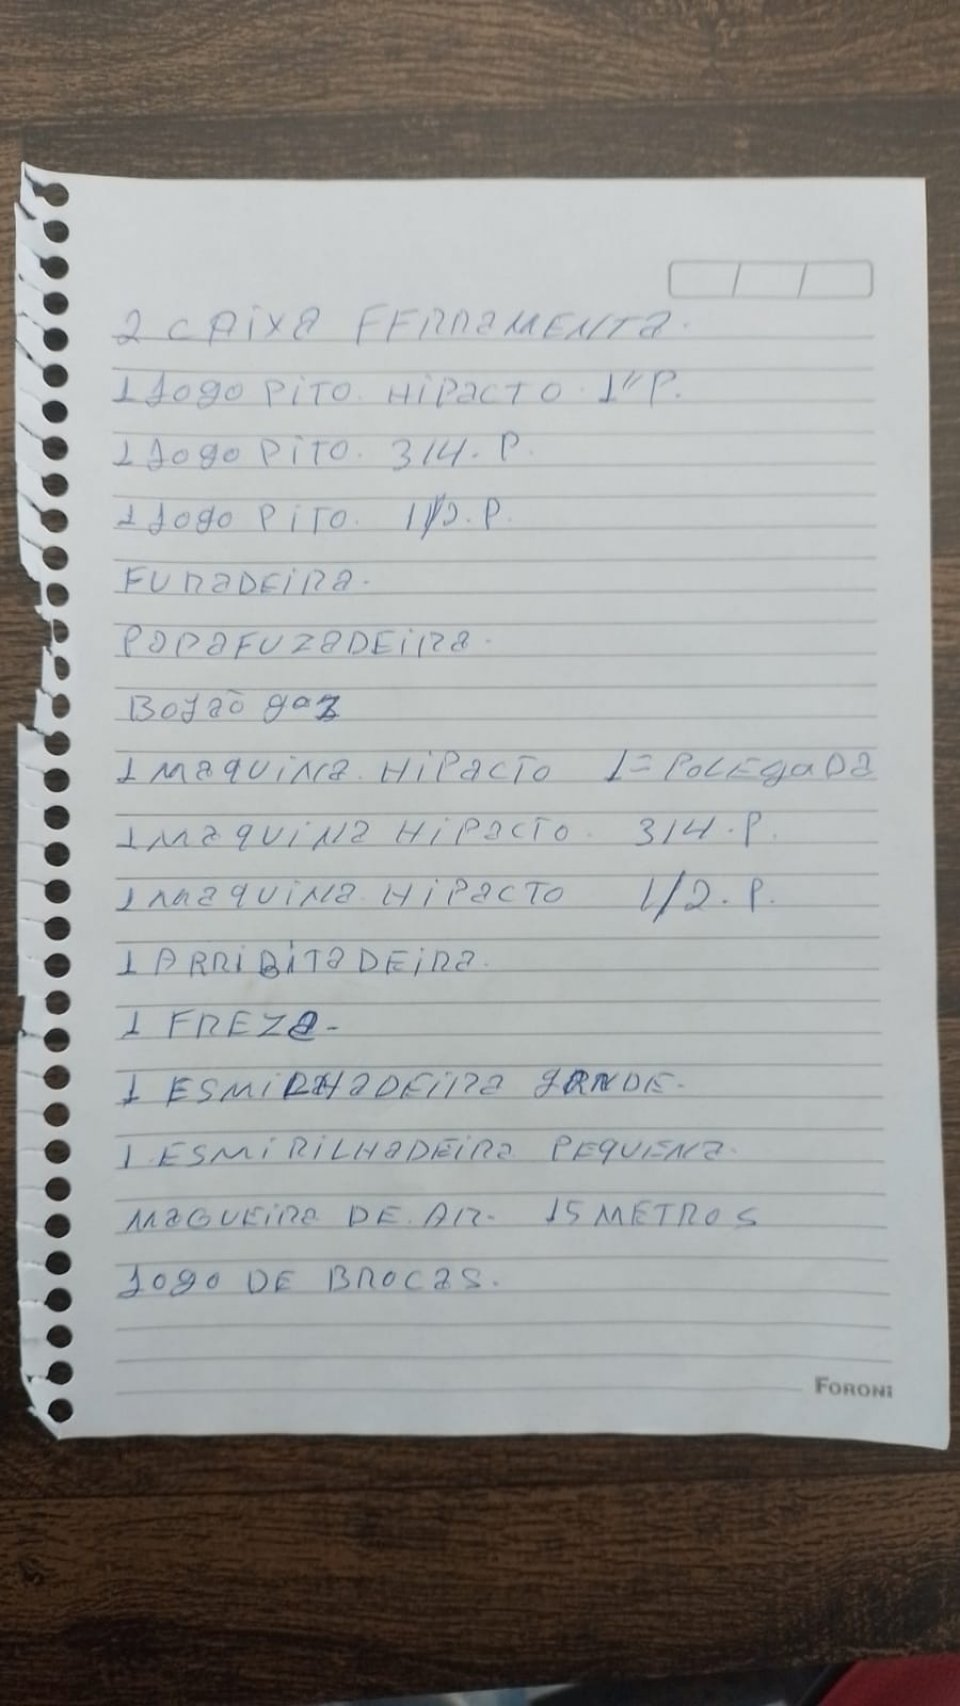 2 CAIXA FERRAMENTA.
1 JOGO PITO. HIPACTO. 1" P.
1 JOGO PITO. 3/4. P.
1 JOGO PITO. 1/2. P.
FURADEIRA.
PARAFUZADEIRA.
BOJÃO gaz
1 MAQUINA. HIPACTO 1= POLEGADA
1 MAQUINA HIPACTO. 3/4. P.
1 MAQUINA. HIPACTO 1/2. P.
1 ARRIBITADEIRA.
1 FREZA-
1 GRANDE.
1 ESMIRILHADEIRA PEQUENA.
MAGUEIRA DE. AR. 15 METROS
JOGO DE BROCAS.
FORONI